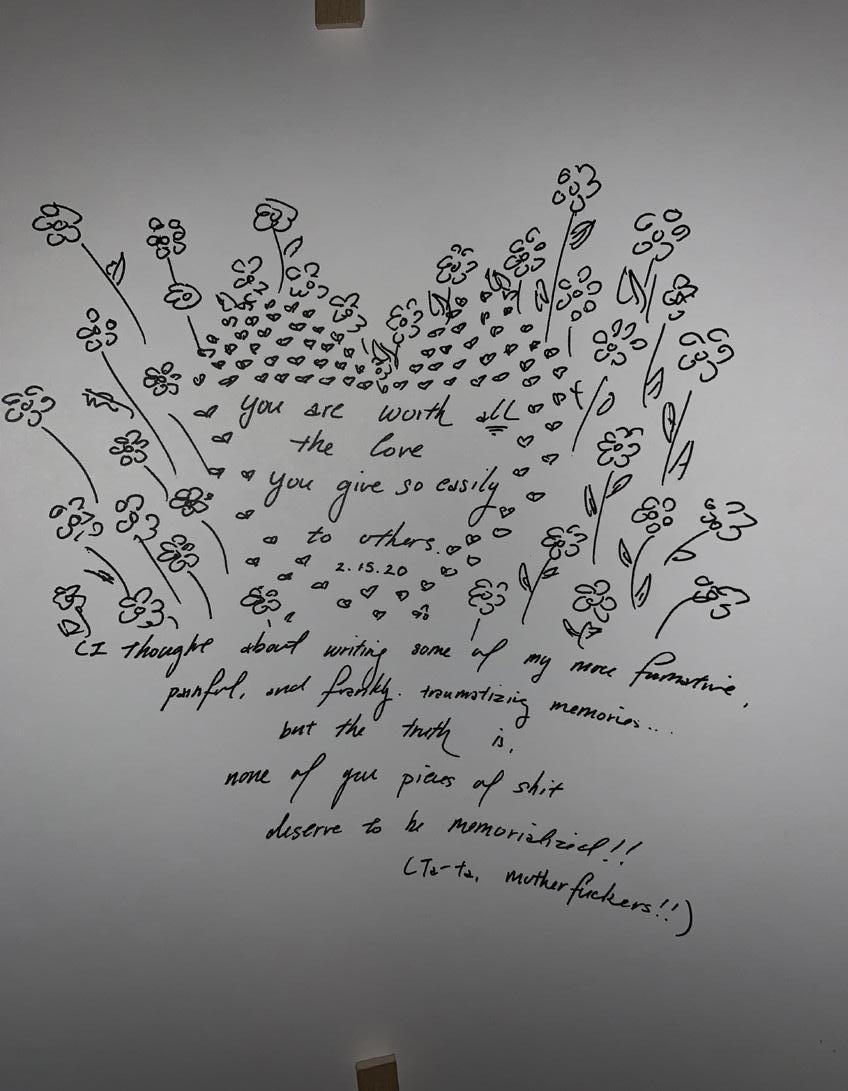 you are worth all
the love
you give so easily
to others.
2.15.20
(I thought about writing some of my more formative,
painful, and frankly. traumatizing memories...
but the truth is,
none of you pieces of shit
deserve to be memorialized!!
(Ta-ta, motherfuckers!!)